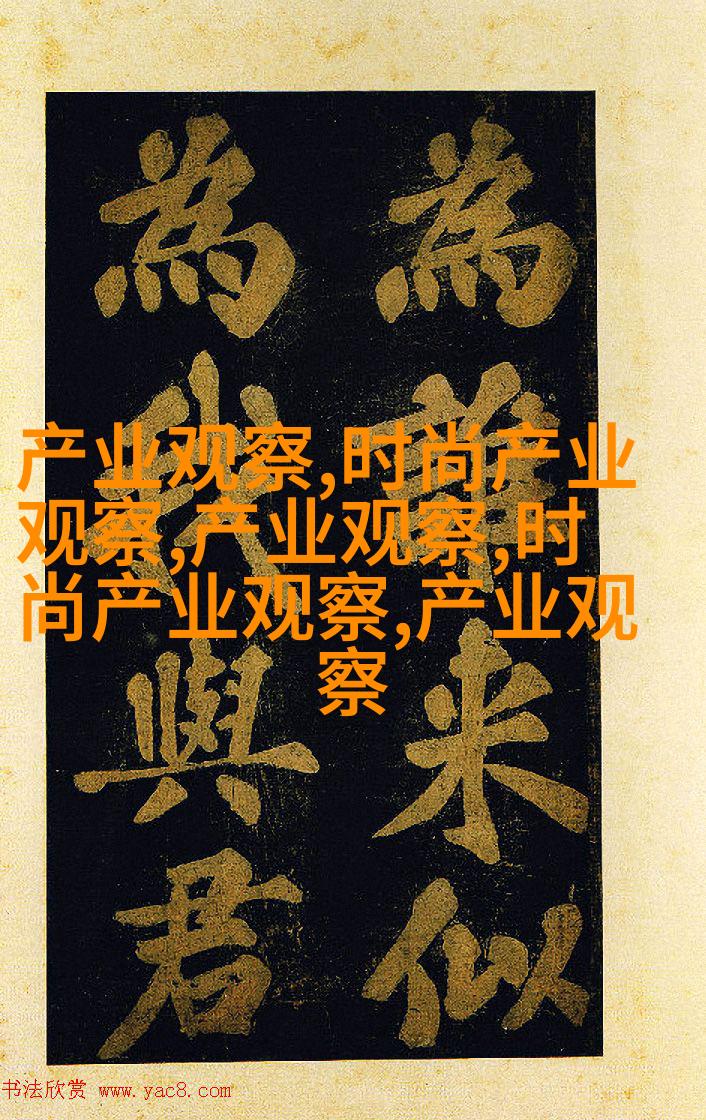 产业观察,时尚产业
观察,产业观察,时
尚产业观察,产业观
察
為来似
為與君
书法欣赏 www.yac8.com